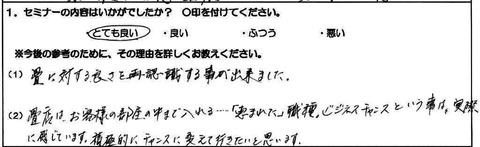 1．セミナーの内容はいかがでしたか？ ○印を付けてください。
・とても良い ・良い ・ふつう ・悪い
※今後の参考のために、その理由を詳しくお教えください。
(1) 畳に対する良さを再認識する事が出来ました。
(2) 畳店は、お客様の部屋の中まで入れる…「恵まれた」職種。ビジネスチャンスという事は、実際
に感じています。積極的にチャンスに変えて行きたいと思います。